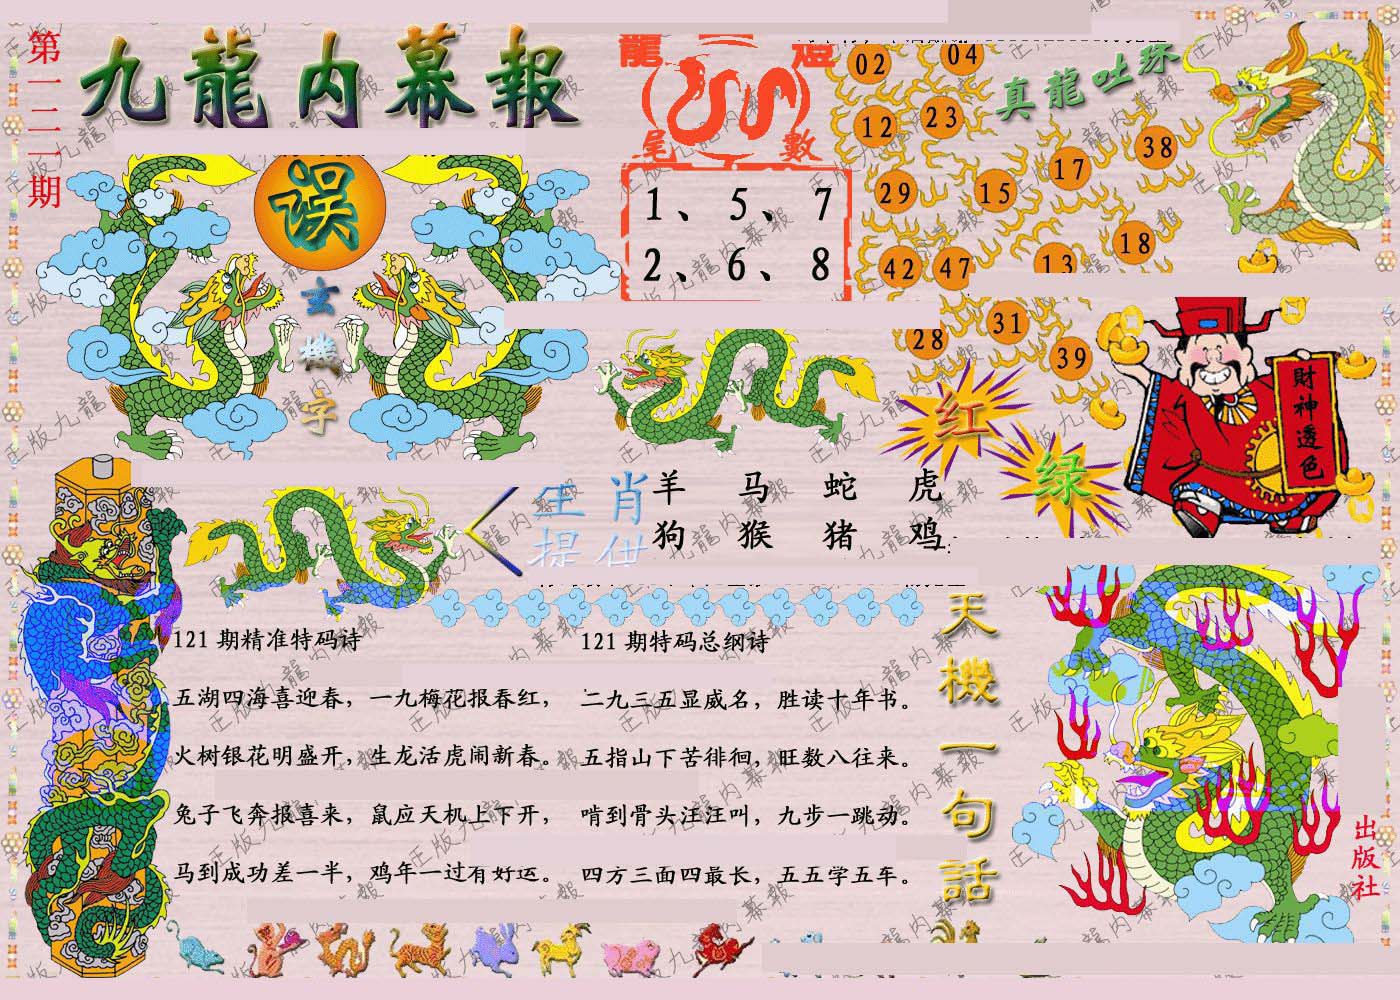 第一二一期
九龍内幕報
误
玄機字
龍 燈
尾 數
1、5、7
2、6、8
真龍吐珠
02 04
12 23
38
17
29 15
18
42 47 13
28 31
39
红
绿
財神透色
生肖
提供
羊 马 蛇 虎
狗 猴 猪 鸡
121期精准特码诗
五湖四海喜迎春，一九梅花报春红，
火树银花明盛开，生龙活虎闹新春。
兔子飞奔报喜来，鼠应天机上下开，
马到成功差一半，鸡年一过有好运。
121期特码总纲诗
二九三五显威名，胜读十年书。
五指山下苦徘徊，旺数八往来。
啃到骨头汪汪叫，九步一跳动。
四方三面四最长，五五学五车。
天機一句話
出版社
正版九龍内幕報